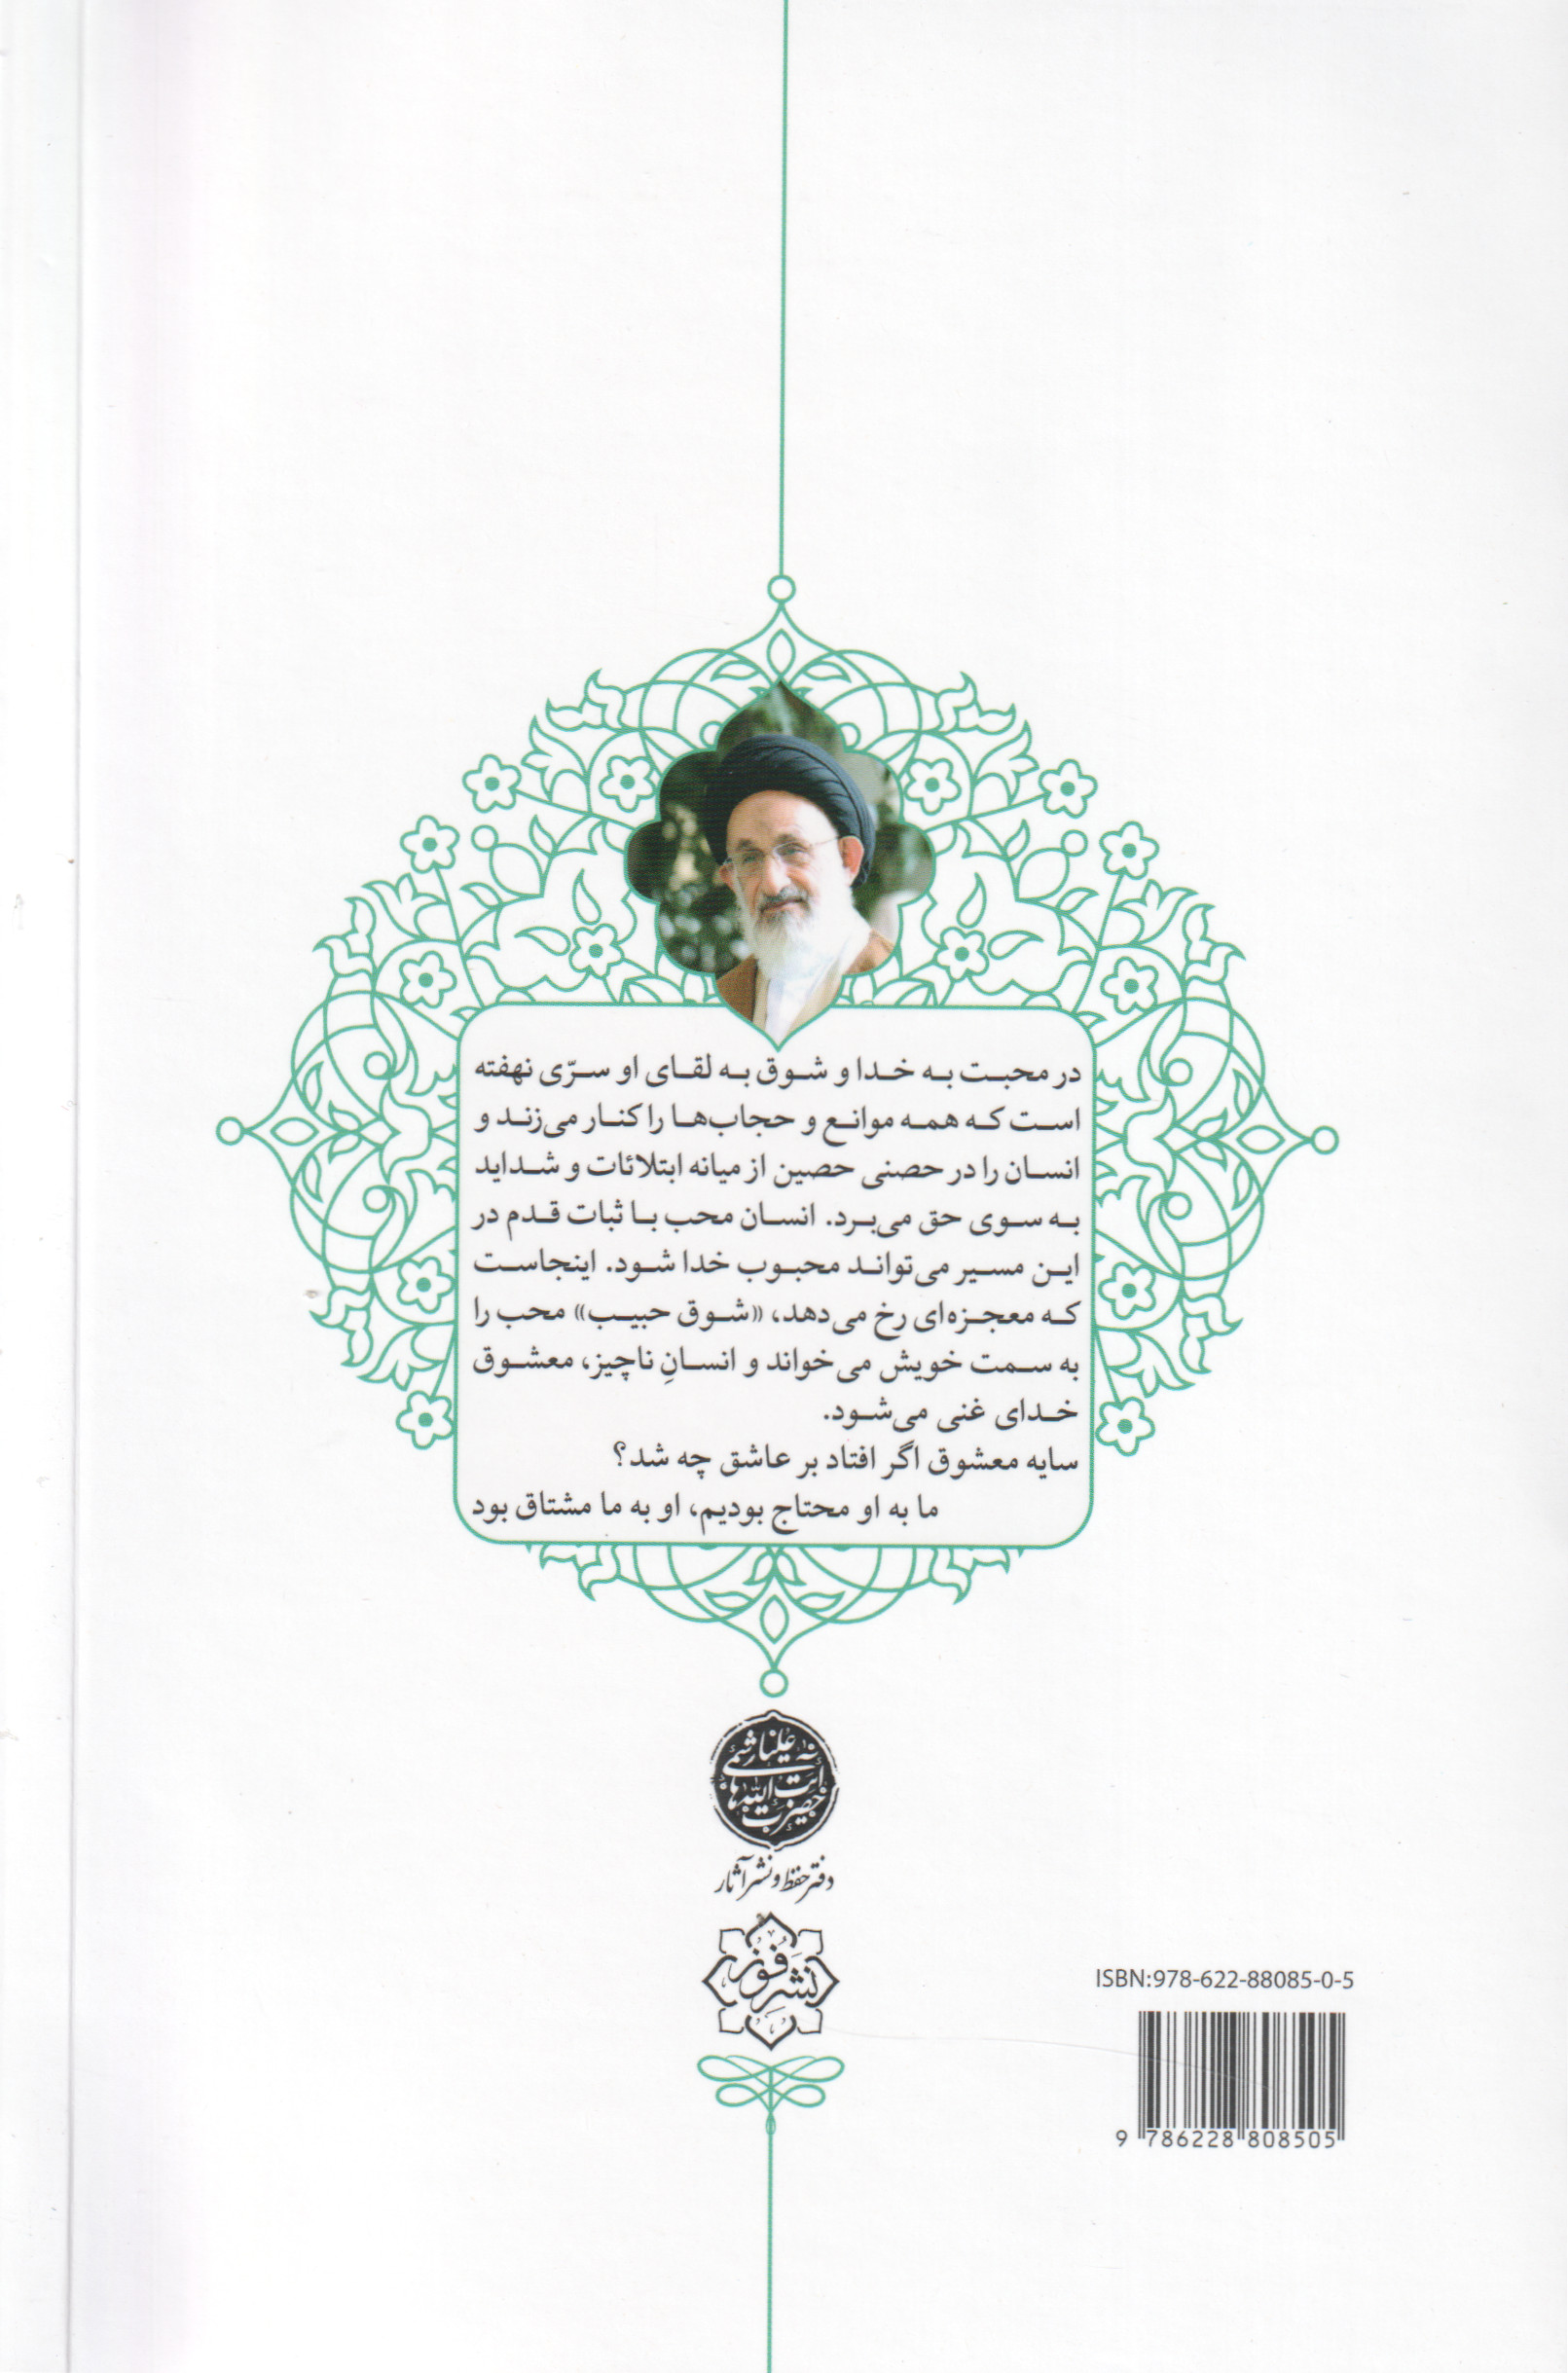 در محبت به خدا و شوق به لقای او سرّی نهفته
است که همه موانع و حجاب‌ها را کنار می‌زند و
انسان را در حصنی حصین از میانه ابتلائات و شداید
به سوی حق می‌برد. انسان محب با ثبات قدم در
این مسیر می‌تواند محبوب خدا شود. اینجاست
که معجزه‌ای رخ می‌دهد، «شوق حبیب» محب را
به سمت خویش می‌خواند و انسانِ ناچیز، معشوق
خدای غنی می‌شود.
سایه معشوق اگر افتاد بر عاشق چه شد؟
ما به او محتاج بودیم، او به ما مشتاق بود
دفتر حفظ و نشر آثار
نشر فوز
ISBN:978-622-88085-0-5
9 786228 808505